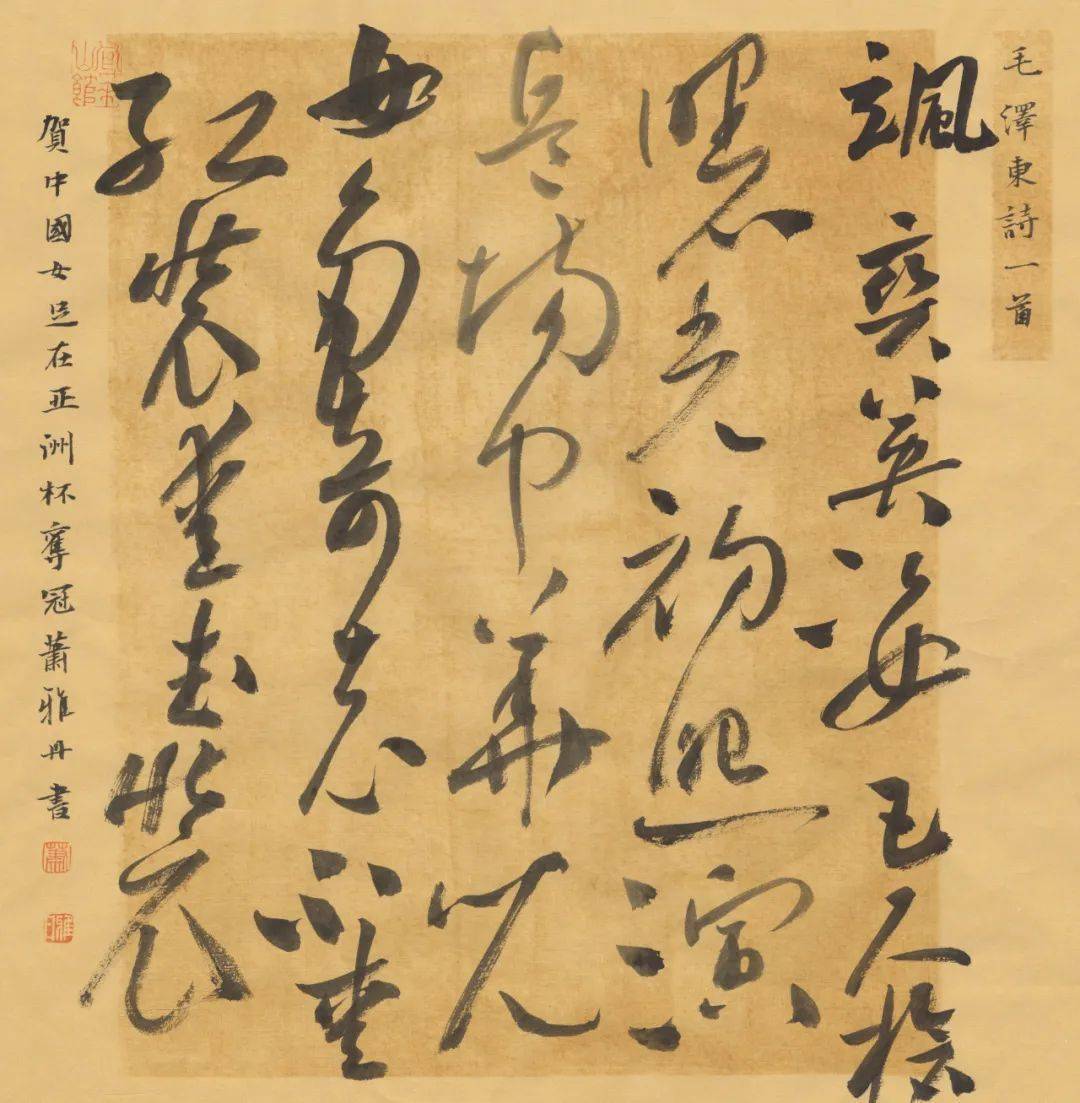 毛澤東詩一首
颯爽英姿五尺槍
曙光初照演
兵場中華兒
女多奇志不愛
紅裝愛武裝
賀中國女足在亚洲杯奪冠蕭雅丹書
蕭